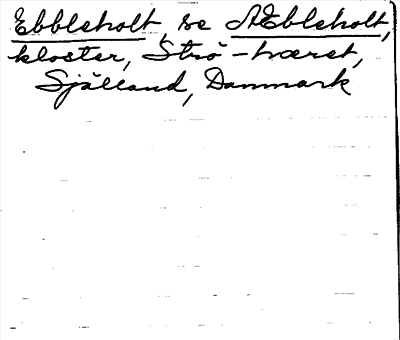 Ebbleholt, se Æbleholt,
kloster, Strö-hæret,
Själland, Danmark